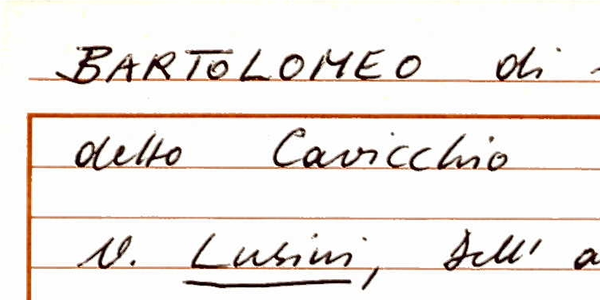 BARTOLOMEO di
detto Cavicchio
V. Lusini, dell' a